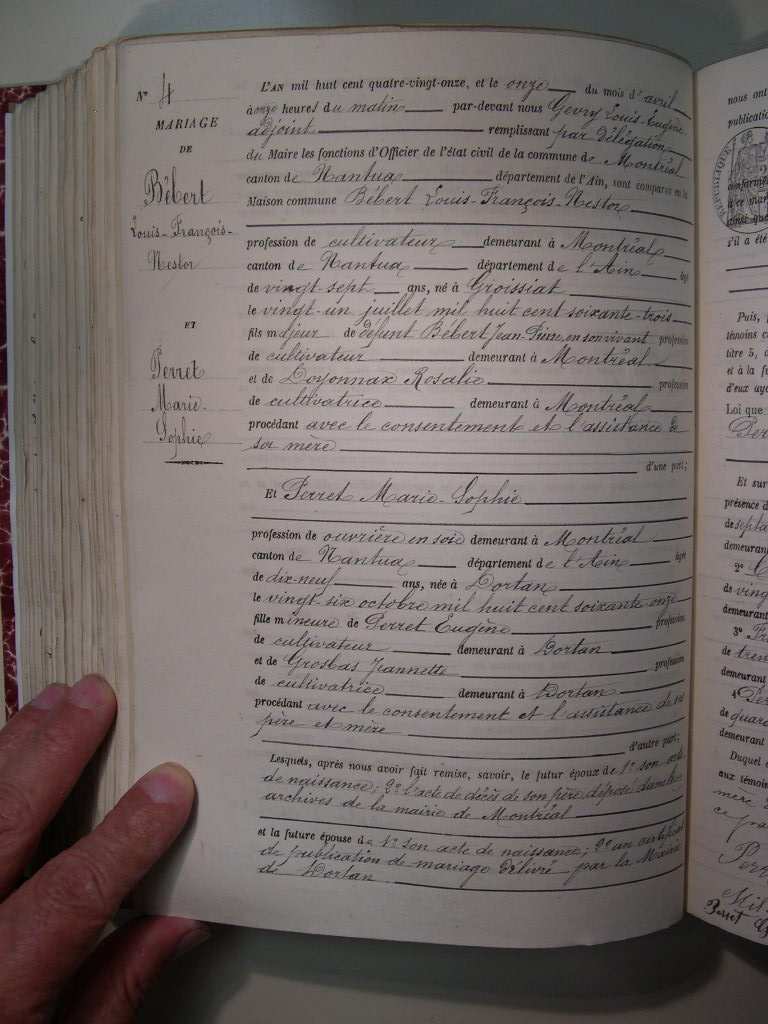 N° 4
MARIAGE
DE
Bébert
Louis-François-
Nestor
ET
Perret
Marie-
Sophie
L'AN mil huit cent quatre-vingt-onze, et le onze du mois d'avril
à onze heures du matin par-devant nous Gevry Louis Eugène
adjoint remplissant par délégation
du Maire les fonctions d'Officier de l'état civil de la commune de Montréal
canton de Nantua département de l'Ain, sont comparus en la
Maison commune Bébert Louis-François-Nestor
profession de cultivateur demeurant à Montréal
canton de Nantua département de l'Ain âgé
de vingt-sept ans, né à Groissiat
le vingt-un juillet mil huit cent soixante-trois
fils majeur de défunt Bébert Jean-Pierre, en son vivant profession
de cultivateur demeurant à Montréal
et de Doyonnax Rosalie profession
de cultivatrice demeurant à Montréal
procédant avec le consentement et l'assistance de
sa mère
d'une part;
Et Perret Marie-Sophie
profession de ouvrière en soie demeurant à Montréal
canton de Nantua département de l'Ain âgée
de dix-neuf ans, née à Dortan
le vingt-six octobre mil huit cent soixante onze
fille mineure de Perret Eugène profession
de cultivateur demeurant à Dortan
et de Grosbas Jeannette profession
de cultivatrice demeurant à Dortan
procédant avec le consentement et l'assistance de ses
père et mère
d'autre part;
Lesquels, après nous avoir fait remise, savoir, le futur époux de 1° son acte
de naissance; 2° l'acte de décès de son père déposé dans les
archives de la mairie de Montréal
et la future épouse de 1° son acte de naissance; 2° un certificat
de publication de mariage délivré par la Mairie
de Dortan
nous ont
publication
RÉPUBLIQUE
conformém
à ce mar
ainsi que
s'il a été
Puis,
témoins
titre 5,
et à la
d'eux
Loi que
Per
Et sur
présence d
de septa
demeurant
2°
de vingt
demeurant
3°
de tren
demeurant
4° Per
de quara
demeurant
Duquel
aux témoin
mère
ce pa
Per